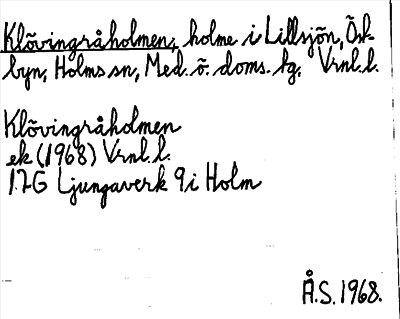 Klövingråholmen, holme i Lillsjön, Öst-
byn, Holms sn, Med. ö. doms. tg. Vrnl.l.
Klövingråholmen
ek (1968) Vrnl.l.
17G Ljungaverk 9i Holm
Å.S. 1968.